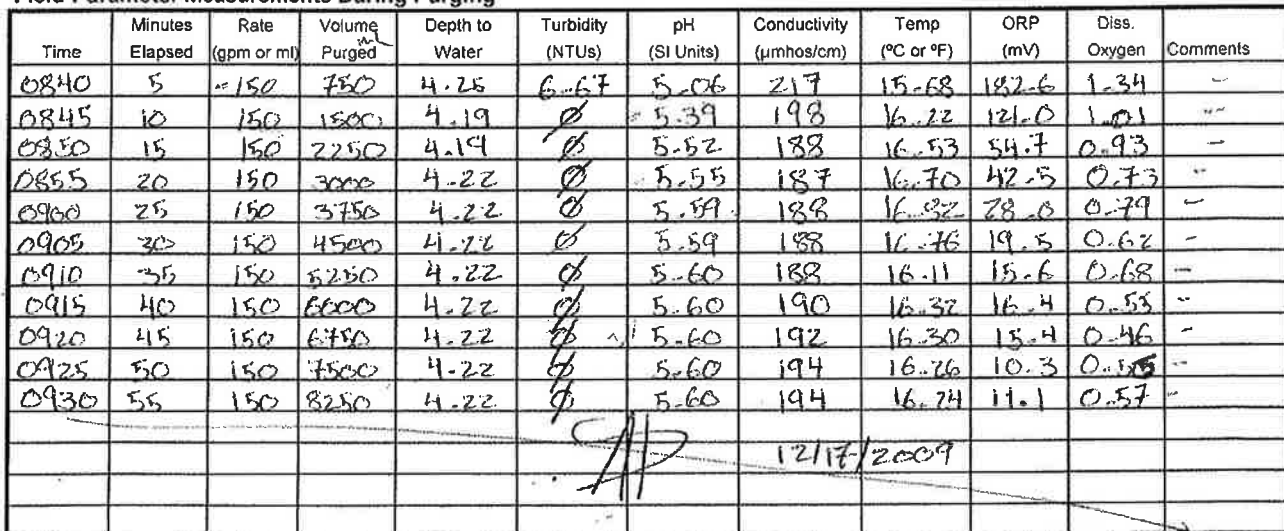 Field Parameter Measurements During Purging
Time | Minutes Elapsed | Rate (gpm or ml) | Volume Purged ml | Depth to Water | Turbidity (NTUs) | pH (SI Units) | Conductivity (µmhos/cm) | Temp (ºC or ºF) | ORP (mV) | Diss. Oxygen | Comments
0840 | 5 | ~150 | 750 | 4.25 | 6.67 | 5.06 | 217 | 15.68 | 182.6 | 1.34 | -
0845 | 10 | 150 | 1500 | 4.19 | Ø | 5.39 | 198 | 16.22 | 121.0 | 1.01 | -
0850 | 15 | 150 | 2250 | 4.19 | Ø | 5.52 | 188 | 16.53 | 54.7 | 0.93 | -
0855 | 20 | 150 | 3000 | 4.22 | Ø | 5.55 | 187 | 16.70 | 42.5 | 0.73 | -
0900 | 25 | 150 | 3750 | 4.22 | Ø | 5.59 | 188 | 16.82 | 28.0 | 0.79 | -
0905 | 30 | 150 | 4500 | 4.22 | Ø | 5.59 | 188 | 16.76 | 19.5 | 0.62 | -
0910 | 35 | 150 | 5250 | 4.22 | Ø | 5.60 | 188 | 16.11 | 15.6 | 0.68 | -
0915 | 40 | 150 | 6000 | 4.22 | Ø | 5.60 | 190 | 16.32 | 16.4 | 0.55 | -
0920 | 45 | 150 | 6750 | 4.22 | Ø | 5.60 | 192 | 16.30 | 15.4 | 0.46 | -
0925 | 50 | 150 | 7500 | 4.22 | Ø | 5.60 | 194 | 16.26 | 10.3 | | -
0930 | 55 | 150 | 8250 | 4.22 | Ø | 5.60 | 194 | 16.24 | 11.1 | 0.57 | -
12/17/2009